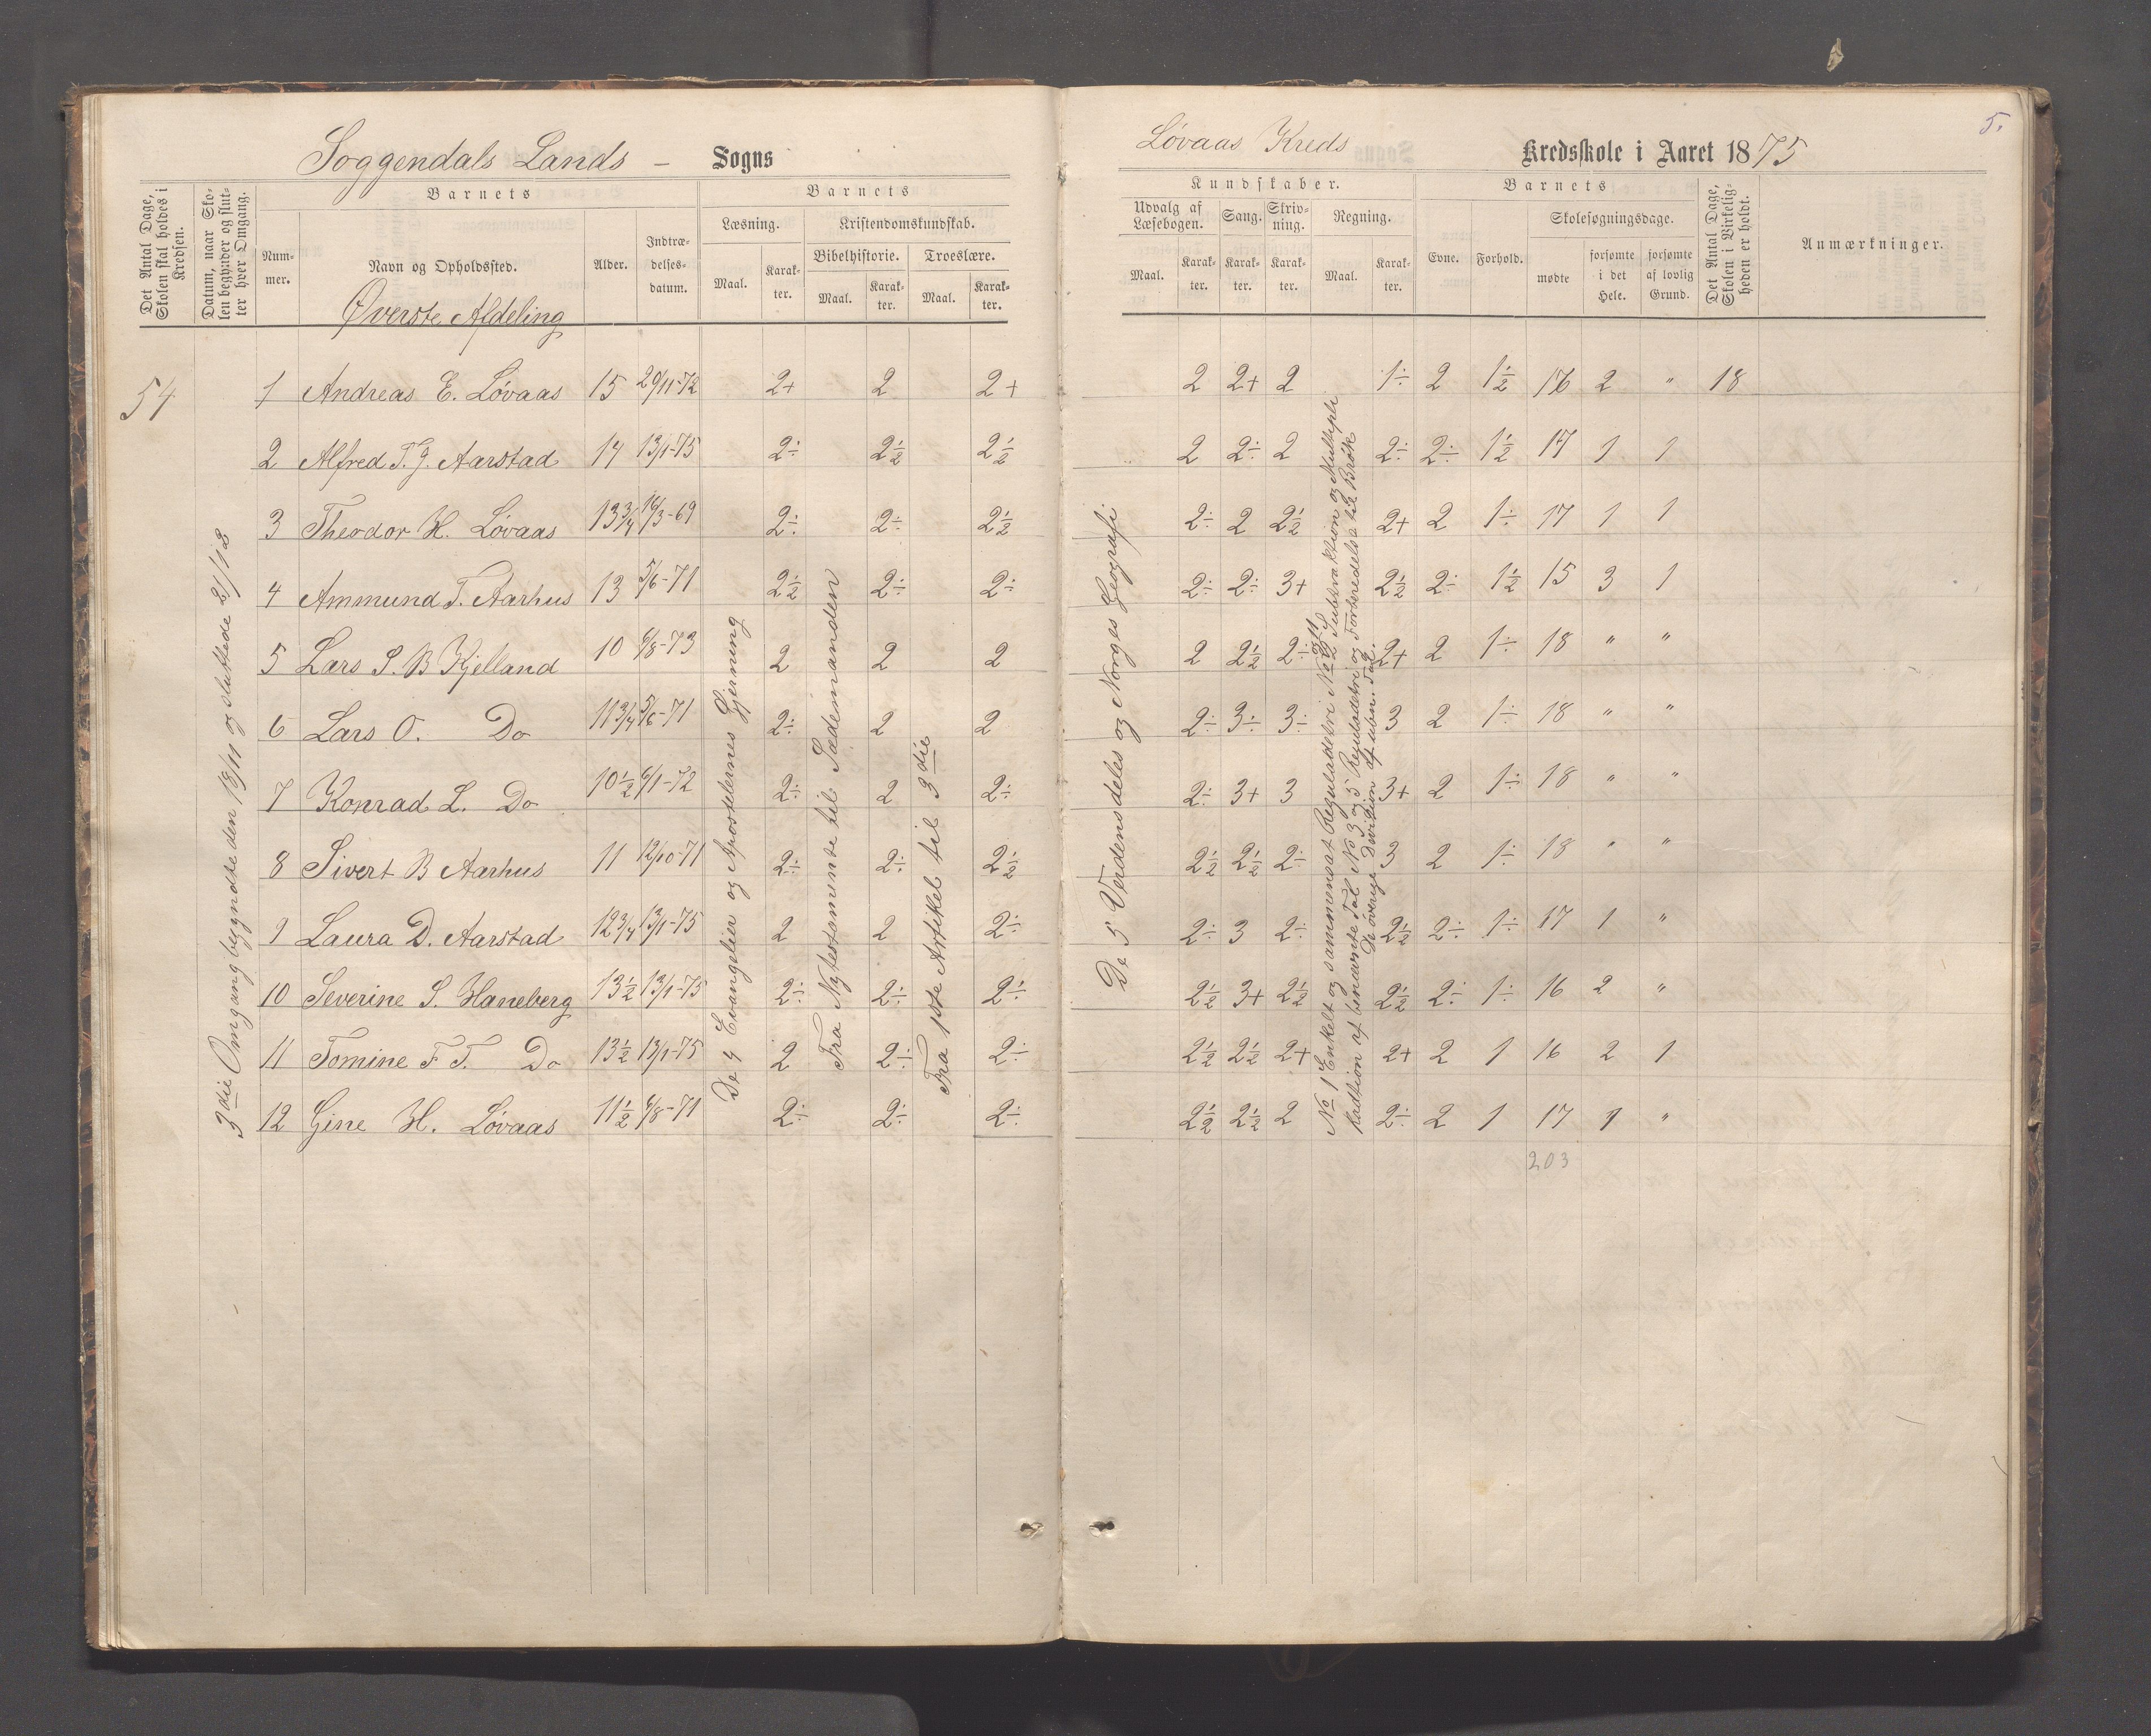 Soggendals Lands – Sogns
Det Antal Dage, Skolen skal holdes i Kredsen.
Datum, naar Skolen begynder og slutter hver Omgang.
Barnets
Nummer.
Navn og Opholdssted.
Øverste Afdeling
Alder.
Indtrædelsesdatum.
Barnets
Læsning.
Maal.
Karakter.
Kristendomskundskab.
Bibelhistorie.
Maal.
Karakter.
Troeslære.
Maal.
Karakter.
54
3die Omgang begyndte den 18/11 og sluttede 21/12
De 4 Evangelier og Apostelernes Gjerning
Fra Nytestamente til Sædemanden
Fra 1ste Artikel til 3die
1 Andreas E. Løvaas 15 20/11-72 2+ 2 2+
2 Alfred T. J. Aarstad 14 13/1-75 2÷ 2½ 2½
3 Theodor H. Løvaas 13¾ 16/3-69 2÷ 2÷ 2½
4 Ammund T. Aarhus 13 5/6-71 2½ 2÷ 2÷
5 Lars S. B Kjelland 10 6/8-73 2 2 2
6 Lars O. Do 11¾ 5/6-71 2÷ 2 2
7 Konrad L. Do 10½ 6/1-72 2÷ 2 2÷
8 Sivert B Aarhus 11 12/10-71 2÷ 2÷ 2½
9 Laura D. Aarstad 12¾ 13/1-75 2 2 2÷
10 Severine S. Haneberg 13½ 13/1-75 2÷ 2÷ 2÷
11 Tomine F T. Do 13½ 13/1-75 2 2÷ 2÷
12 Gine H. Løvaas 11½ 6/8-71 2÷ 2÷ 2÷
5.
Løvaas Kreds Kredsskole i Aaret 1875
Kundskaber.
Udvalg af Læsebogen.
Maal.
Karakter.
Sang.
Karakter.
Skrivning.
Karakter.
Regning.
Maal.
Karakter.
Barnets
Evne.
Forhold.
Skolesøgningsdage.
mødte
forsømte i det Hele.
forsømte af lovlig Grund.
Det Antal Dage, Skolen i Virkeligheden er holdt.
Anmærkninger.
De 5 Verdensdele og Norges Geografi
No 1 Enkelt og sammensat Reguladetri No 2 Subtraktion og Multipli
kadtion af benævnte Tal No 3 og 5 Reguladetri og Forberedelse til Brøk
De øvrige Divition af ubn. Tal.
2 2+ 2 1÷ 2 1½ 16 2 " 18
2 2÷ 2 2÷ 2÷ 1½ 17 1 1
2÷ 2 2½ 2+ 2 1÷ 17 1 1
2÷ 2÷ 3+ 2½ 2÷ 1½ 15 3 1
2 2½ 2÷ 2+ 2 1÷ 18 " "
2÷ 3÷ 3÷ 3 2 1÷ 18 " "
2÷ 3+ 3 3+ 2 1÷ 18 " "
2½ 2½ 2÷ 3 2 1÷ 18 " "
2÷ 3 2÷ 2½ 2÷ 1÷ 17 1 "
2½ 3+ 2½ 2½ 2÷ 1÷ 16 2 "
2½ 2½ 2+ 2+ 2 1 16 2 1
2½ 2½ 2 2÷ 2 1 17 1 "
203